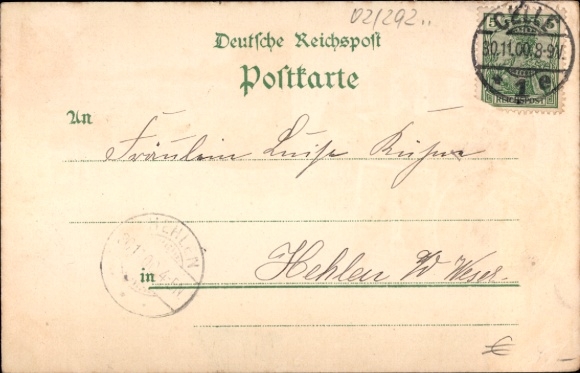 02/292..
Deutsche Reichspost
Postkarte
CELLE
30.11.00.8-9N.
* 1 e
REICHSPOST
An
Fräulein Luise Kühne
HEHLEN
in Hehlen a/d Weser.
€